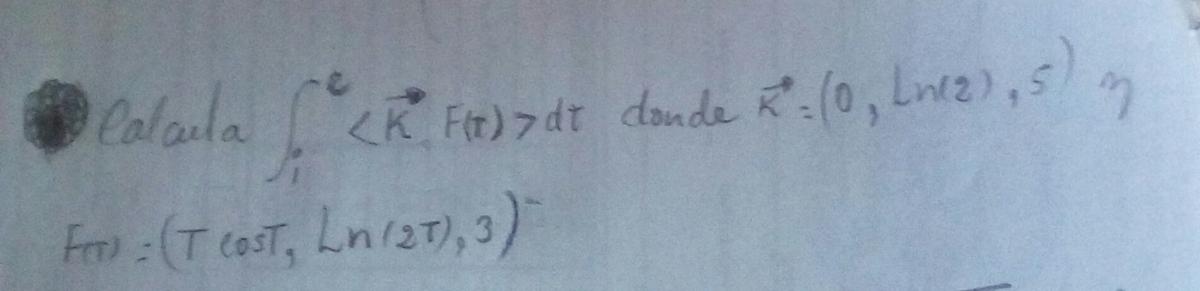 Calcula ∫₁ᵉ <K⃗, F(T)> dt donde K⃗ = (0, Ln(2), 5) y
F(T) = (T cosT, Ln(2T), 3)